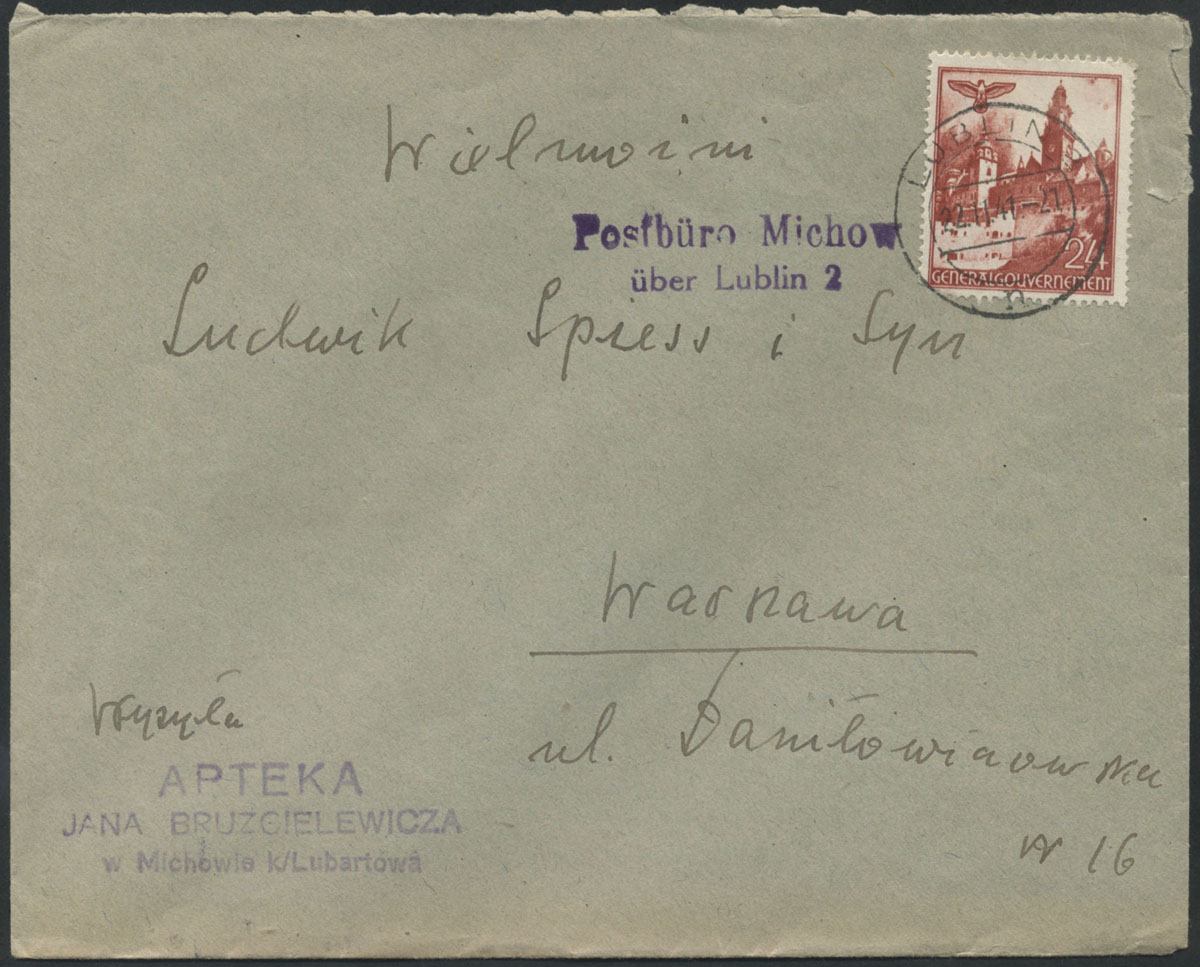 Wielmożni
Postbüro Michow
über Lublin 2
LUBLIN
22.11.41.-21
24
GENERALGOUVERNEMENT
n
Ludwik Spiess i Syn
Warszawa
ul. Daniłowiczowska
nr 16
Wysyła
APTEKA
JANA BRUZGIELEWICZA
w Michowie k/Lubartowa